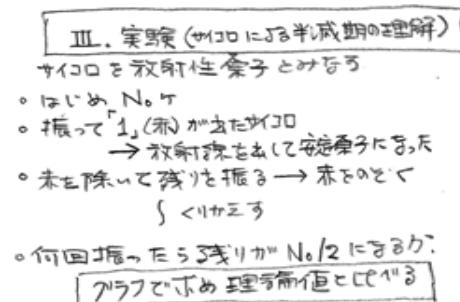 III. 実験 (サイコロによる半減期の理解)
サイコロを放射性原子とみなす
○ はじめ N₀ヶ
○ 振って「1」(赤)が出たサイコロ
→ 放射線を出して安定原子になった
○ 赤を除いて残りを振る → 赤をのぞく
⌠ くりかえす
○ 何回振ったら残りが N₀/2 になるか?
グラフで求め 理論値と比べる